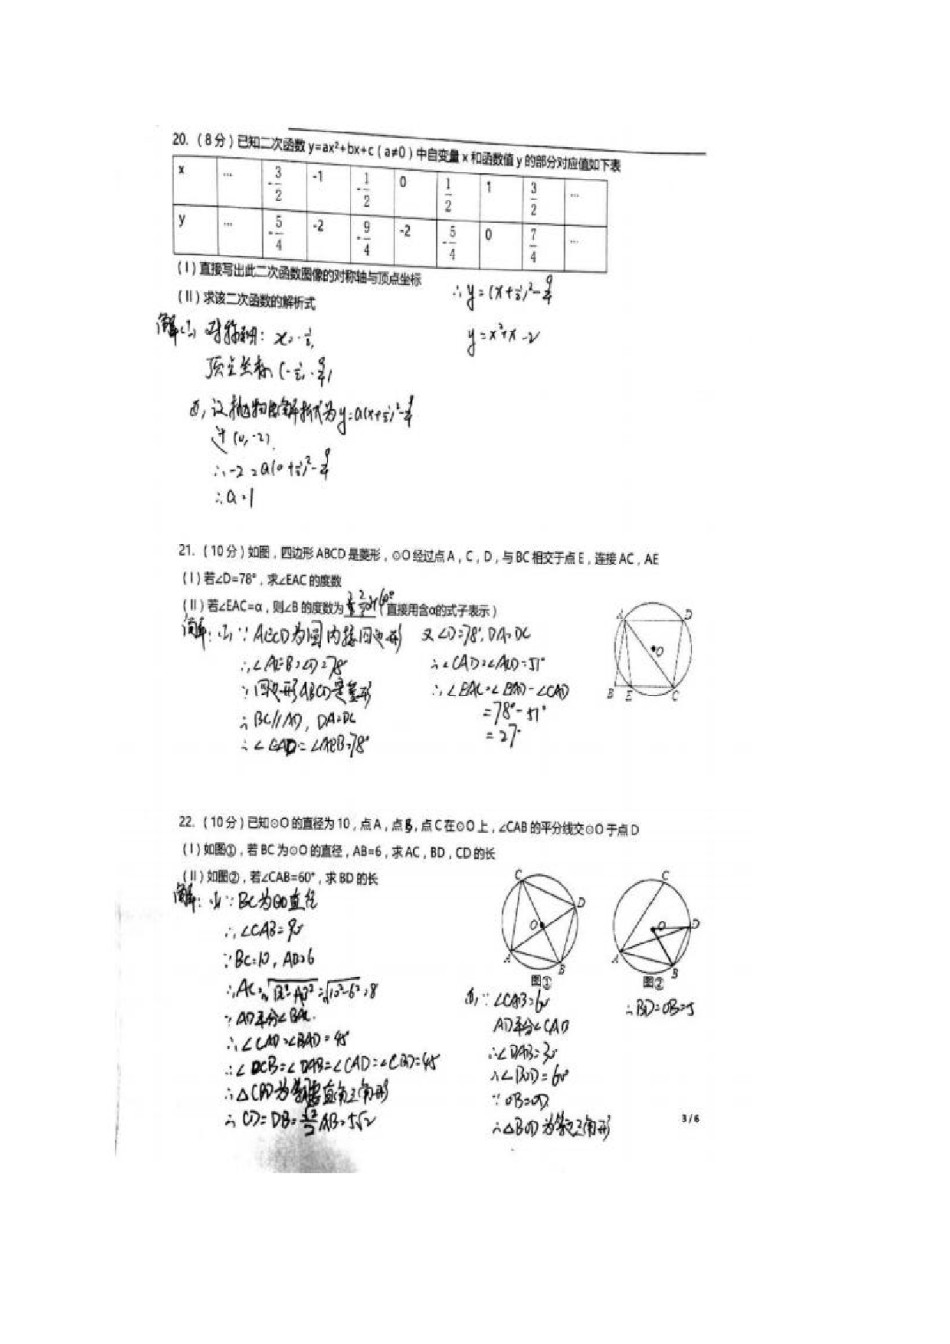 20.（8分）已知二次函数 y=ax²+bx+c（a≠0）中自变量 x 和函数值 y 的部分对应值如下表
x ... -3/2 -1 -1/2 0 1/2 1 3/2 ...
y ... -5/4 -2 -9/4 -2 -5/4 0 7/4 ...
(I) 直接写出此二次函数图像的对称轴与顶点坐标
(II) 求该二次函数的解析式
解: (1) 对称轴: x=-1/2
顶点坐标 (-1/2, -9/4)
(2) 设抛物线解析式为 y=a(x+1/2)²-9/4
过(0,-2)
∴-2=a(0+1/2)²-9/4
∴a=1
∴y=(x+1/2)²-9/4
y=x²+x-2
21.（10分）如图，四边形 ABCD 是菱形，⊙O 经过点 A，C，D，与 BC 相交于点 E，连接 AC，AE
(I) 若∠D=78°，求∠EAC 的度数
(II) 若∠EAC=α，则∠B 的度数为 直接用含α的式子表示）
解: (1) ∵AECD为圆内接四边形
∴∠AEB=∠D=78°
∵四边形ABCD是菱形
∴BC//AD, DA=DC
∴∠EAD=∠AEB=78°
又∠D=78°, DA=DC
∴∠CAD=∠ACD=51°
∴∠EAC=∠EAD-∠CAD
=78°-51°
=27°
A D O B E C
22.（10分）已知⊙O 的直径为 10，点 A，点 B，点 C 在⊙O 上，∠CAB 的平分线交⊙O 于点 D
(I) 如图①，若 BC 为⊙O 的直径，AB=6，求 AC，BD，CD 的长
(II) 如图②，若∠CAB=60°，求 BD 的长
解: (1) ∵BC为⊙O直径
∴∠CAB=90°
∵BC=10, AB=6
∴AC=√BC²-AB²=√10²-6²=8
∵AD平分∠BAC
∴∠CAD=∠BAD=45°
∴∠DCB=∠DAB=∠CAD=∠CBD=45°
∴△CBD为等腰直角三角形
C D O A B
图①
C O D A B
图②
(2) ∵∠CAB=60°
AD平分∠CAB
∴∠DAB=30°
∴∠BOD=60°
∵OB=OD
∴△BOD为等边三角形
∴BD=OB=5
3/6